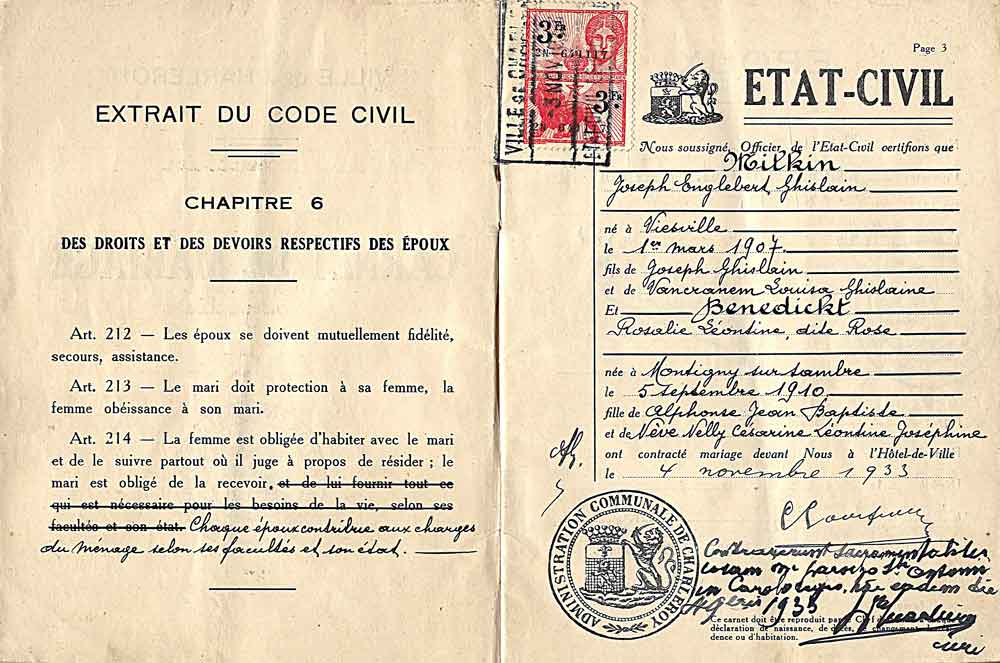 EXTRAIT DU CODE CIVIL
CHAPITRE 6
DES DROITS ET DES DEVOIRS RESPECTIFS DES ÉPOUX
Art. 212 — Les époux se doivent mutuellement fidélité,
secours, assistance.
Art. 213 — Le mari doit protection à sa femme, la
femme obéissance à son mari.
Art. 214 — La femme est obligée d'habiter avec le mari
et de le suivre partout où il juge à propos de résider ; le
mari est obligé de la recevoir, et de lui fournir tout ce
qui est nécessaire pour les besoins de la vie, selon ses
facultés et son état. Chaque époux contribue aux charges
du ménage selon ses facultés et son état.
3Fr
3Fr
VILLE DE
3 NOV
Page 3
ETAT-CIVIL
Nous soussigné, Officier de l'Etat-Civil certifions que
Milkin
Joseph Englebert Ghislain
né à Viesville
le 1er mars 1907
fils de Joseph Ghislain
et de Vancranem Louisa Ghislaine
Et Benedickt
Rosalie Léontine, dite Rose
née à Montigny sur Sambre
le 5 septembre 1910
fille de Alphonse Jean Baptiste
et de Nève Nelly Césarine Léontine Joséphine
ont contracté mariage devant Nous à l'Hôtel-de-Ville
le 4 novembre 1933
ADMINISTRATION COMMUNALE DE CHARLEROY
Contraxerunt sacramentaliter
coram me
die
1933
Ce carnet doit être reproduit
déclaration de naissance, de décès, de changement
dence ou d'habitation.